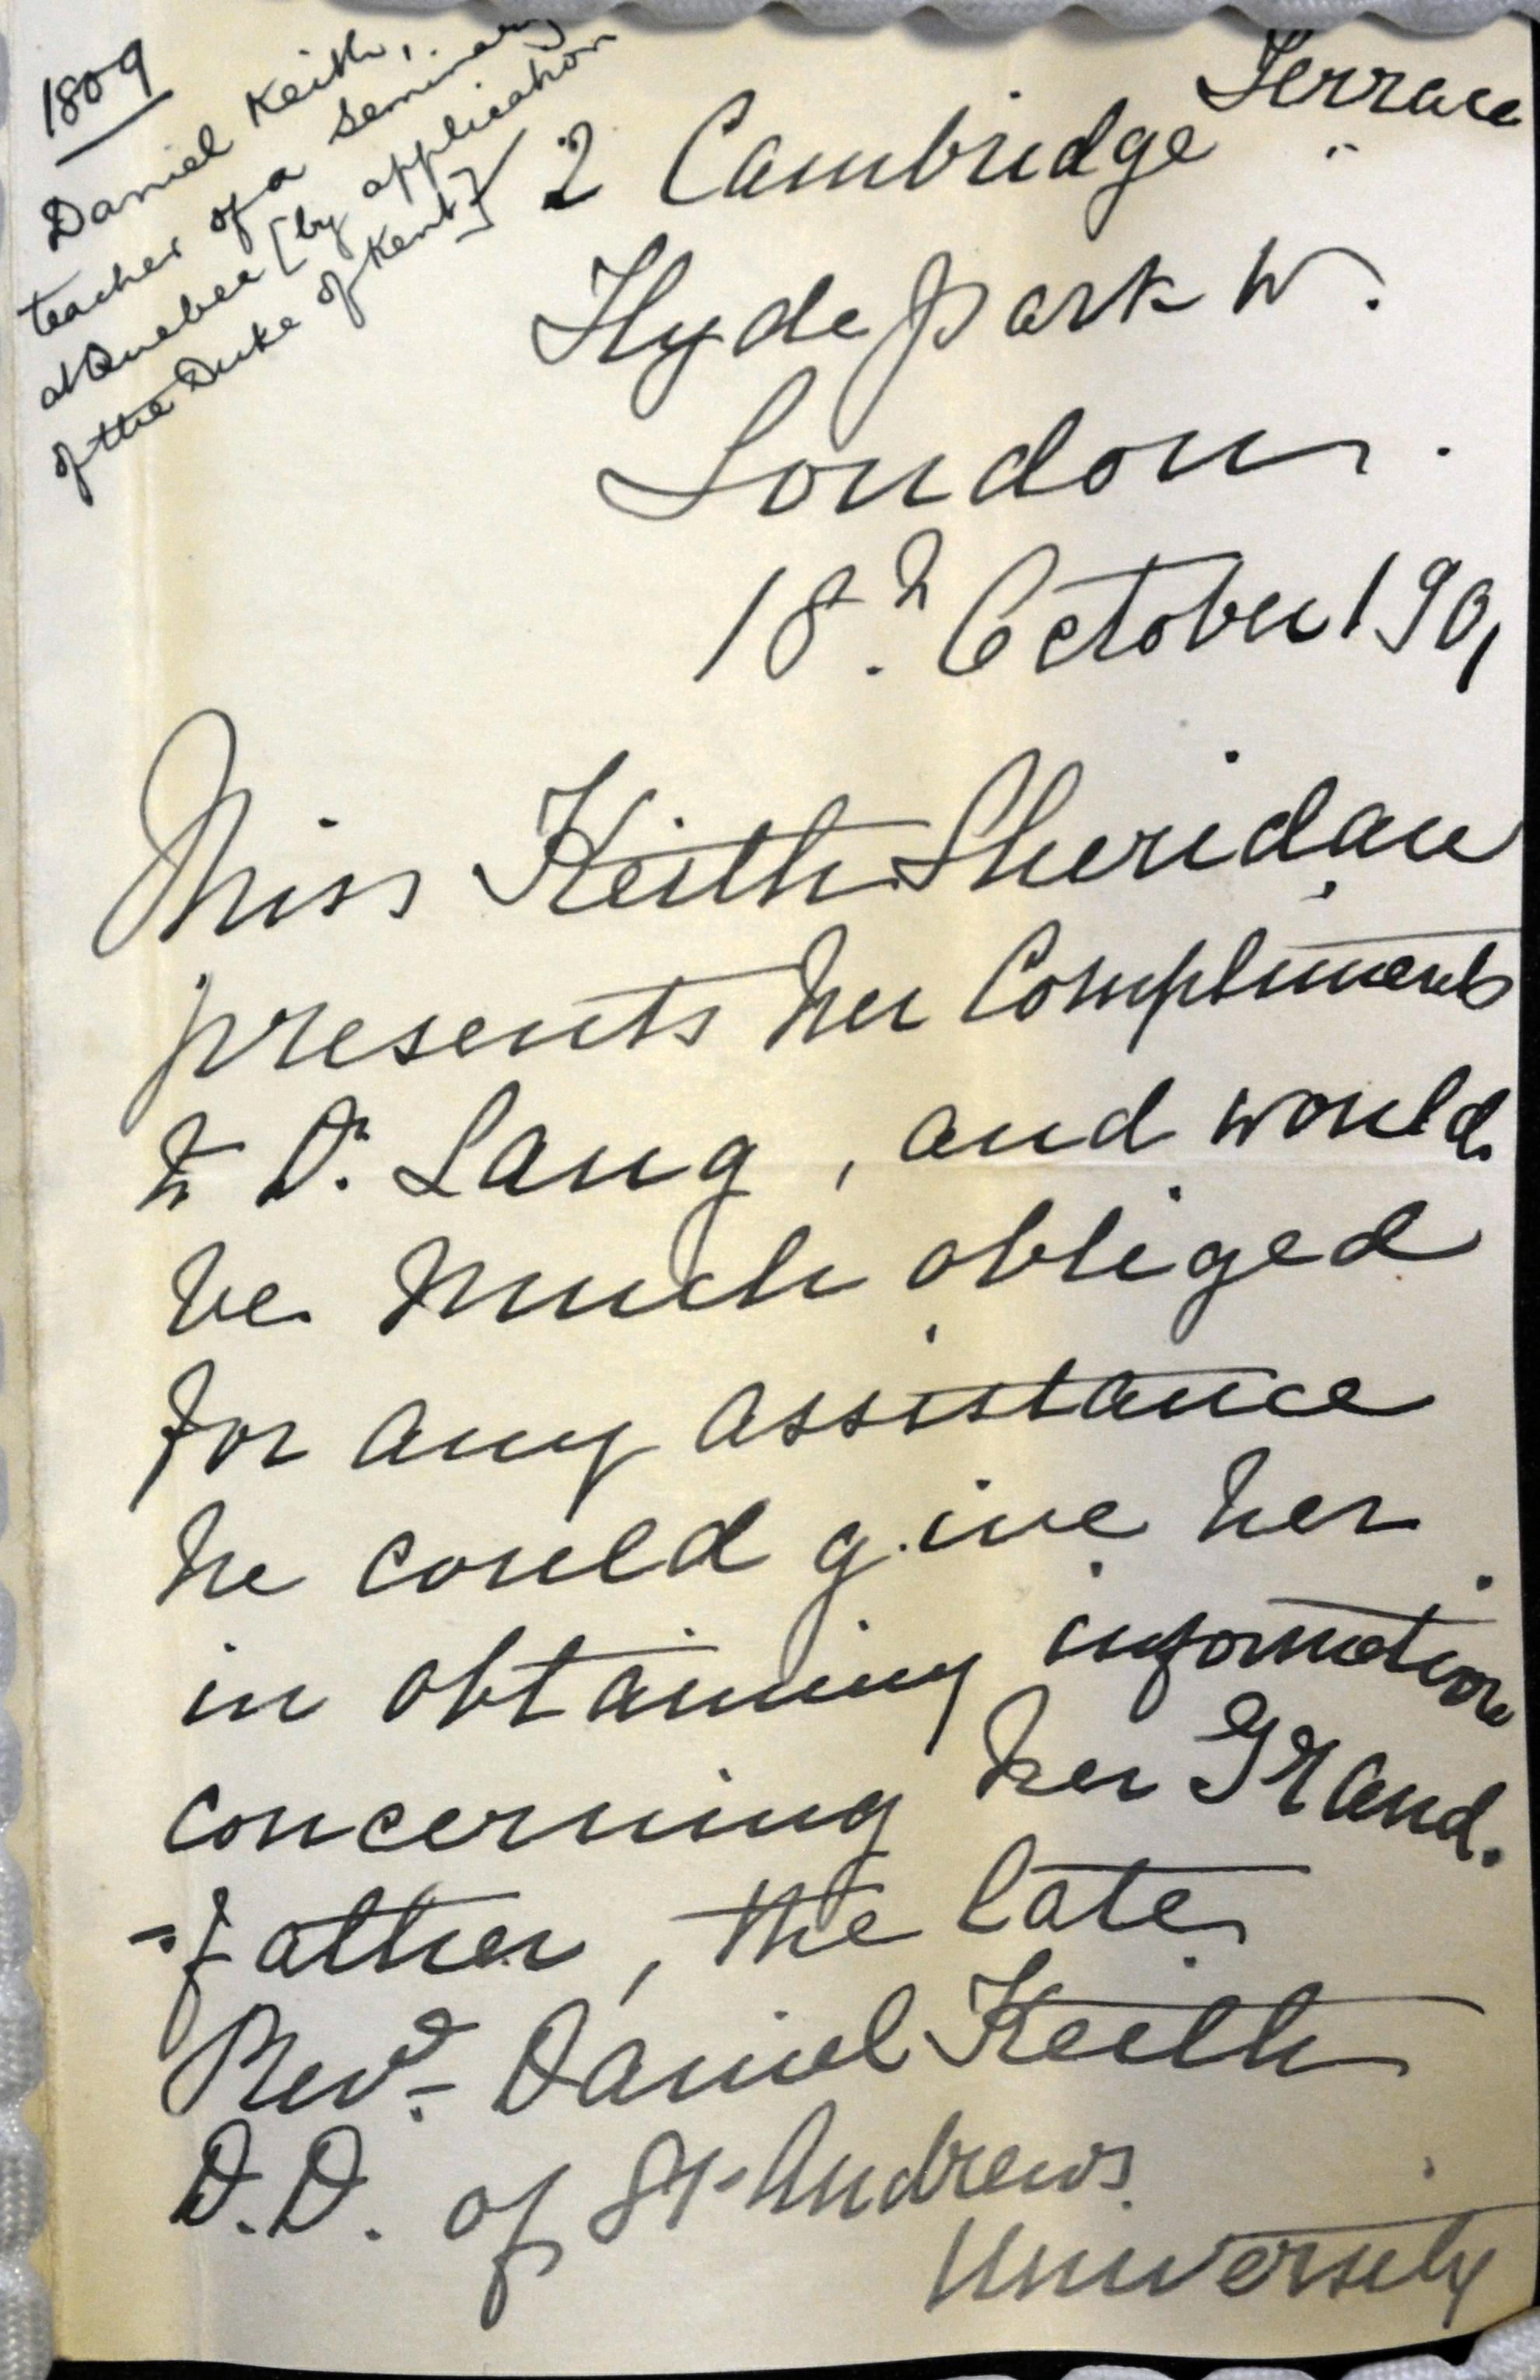 1809
Daniel Keith,
teacher of a Seminary
at Quebec [by application
of the Duke of Kent]
2 Cambridge Terrace
Hyde Park W.
London.
18th October 1901
Miss Keith Sheridan
presents her Compliments
to Dr. Lang, and would
be much obliged
for any assistance
he could give her
in obtaining information
concerning her Grand-
=father, the late
Revd. Daniel Keith
D.D. of St. Andrews
University